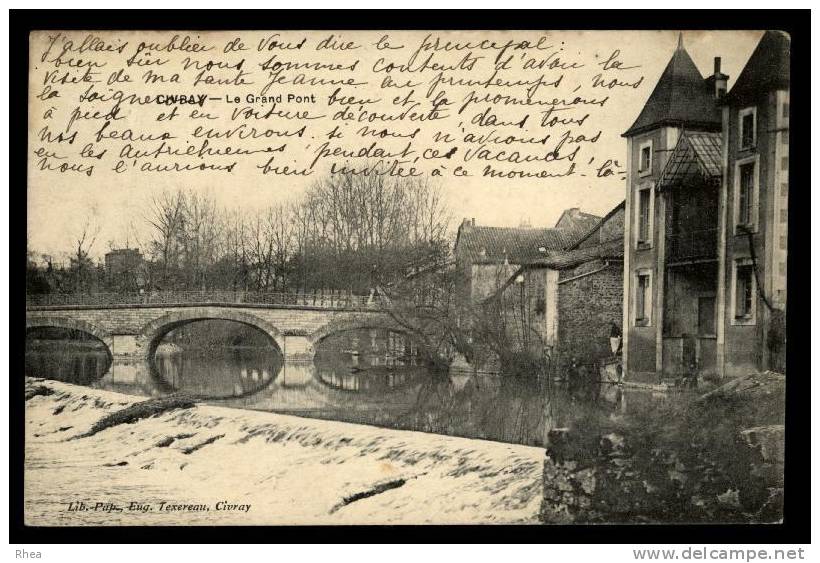 J'allais oublier de vous dire le principal :
bien sûr nous sommes contents d'avoir la
visite de ma tante Jeanne au printemps, nous
la soignerons bien et la promènerons
CIVRAY — Le Grand Pont
à pied et en voiture découverte, dans tous
nos beaux environs. si nous n'avions pas
en les Autrichiennes pendant ces vacances,
nous l'aurions bien invitée à ce moment-là-
Lib.-Pap., Eug. Texereau, Civray
Rhea
www.delcampe.net